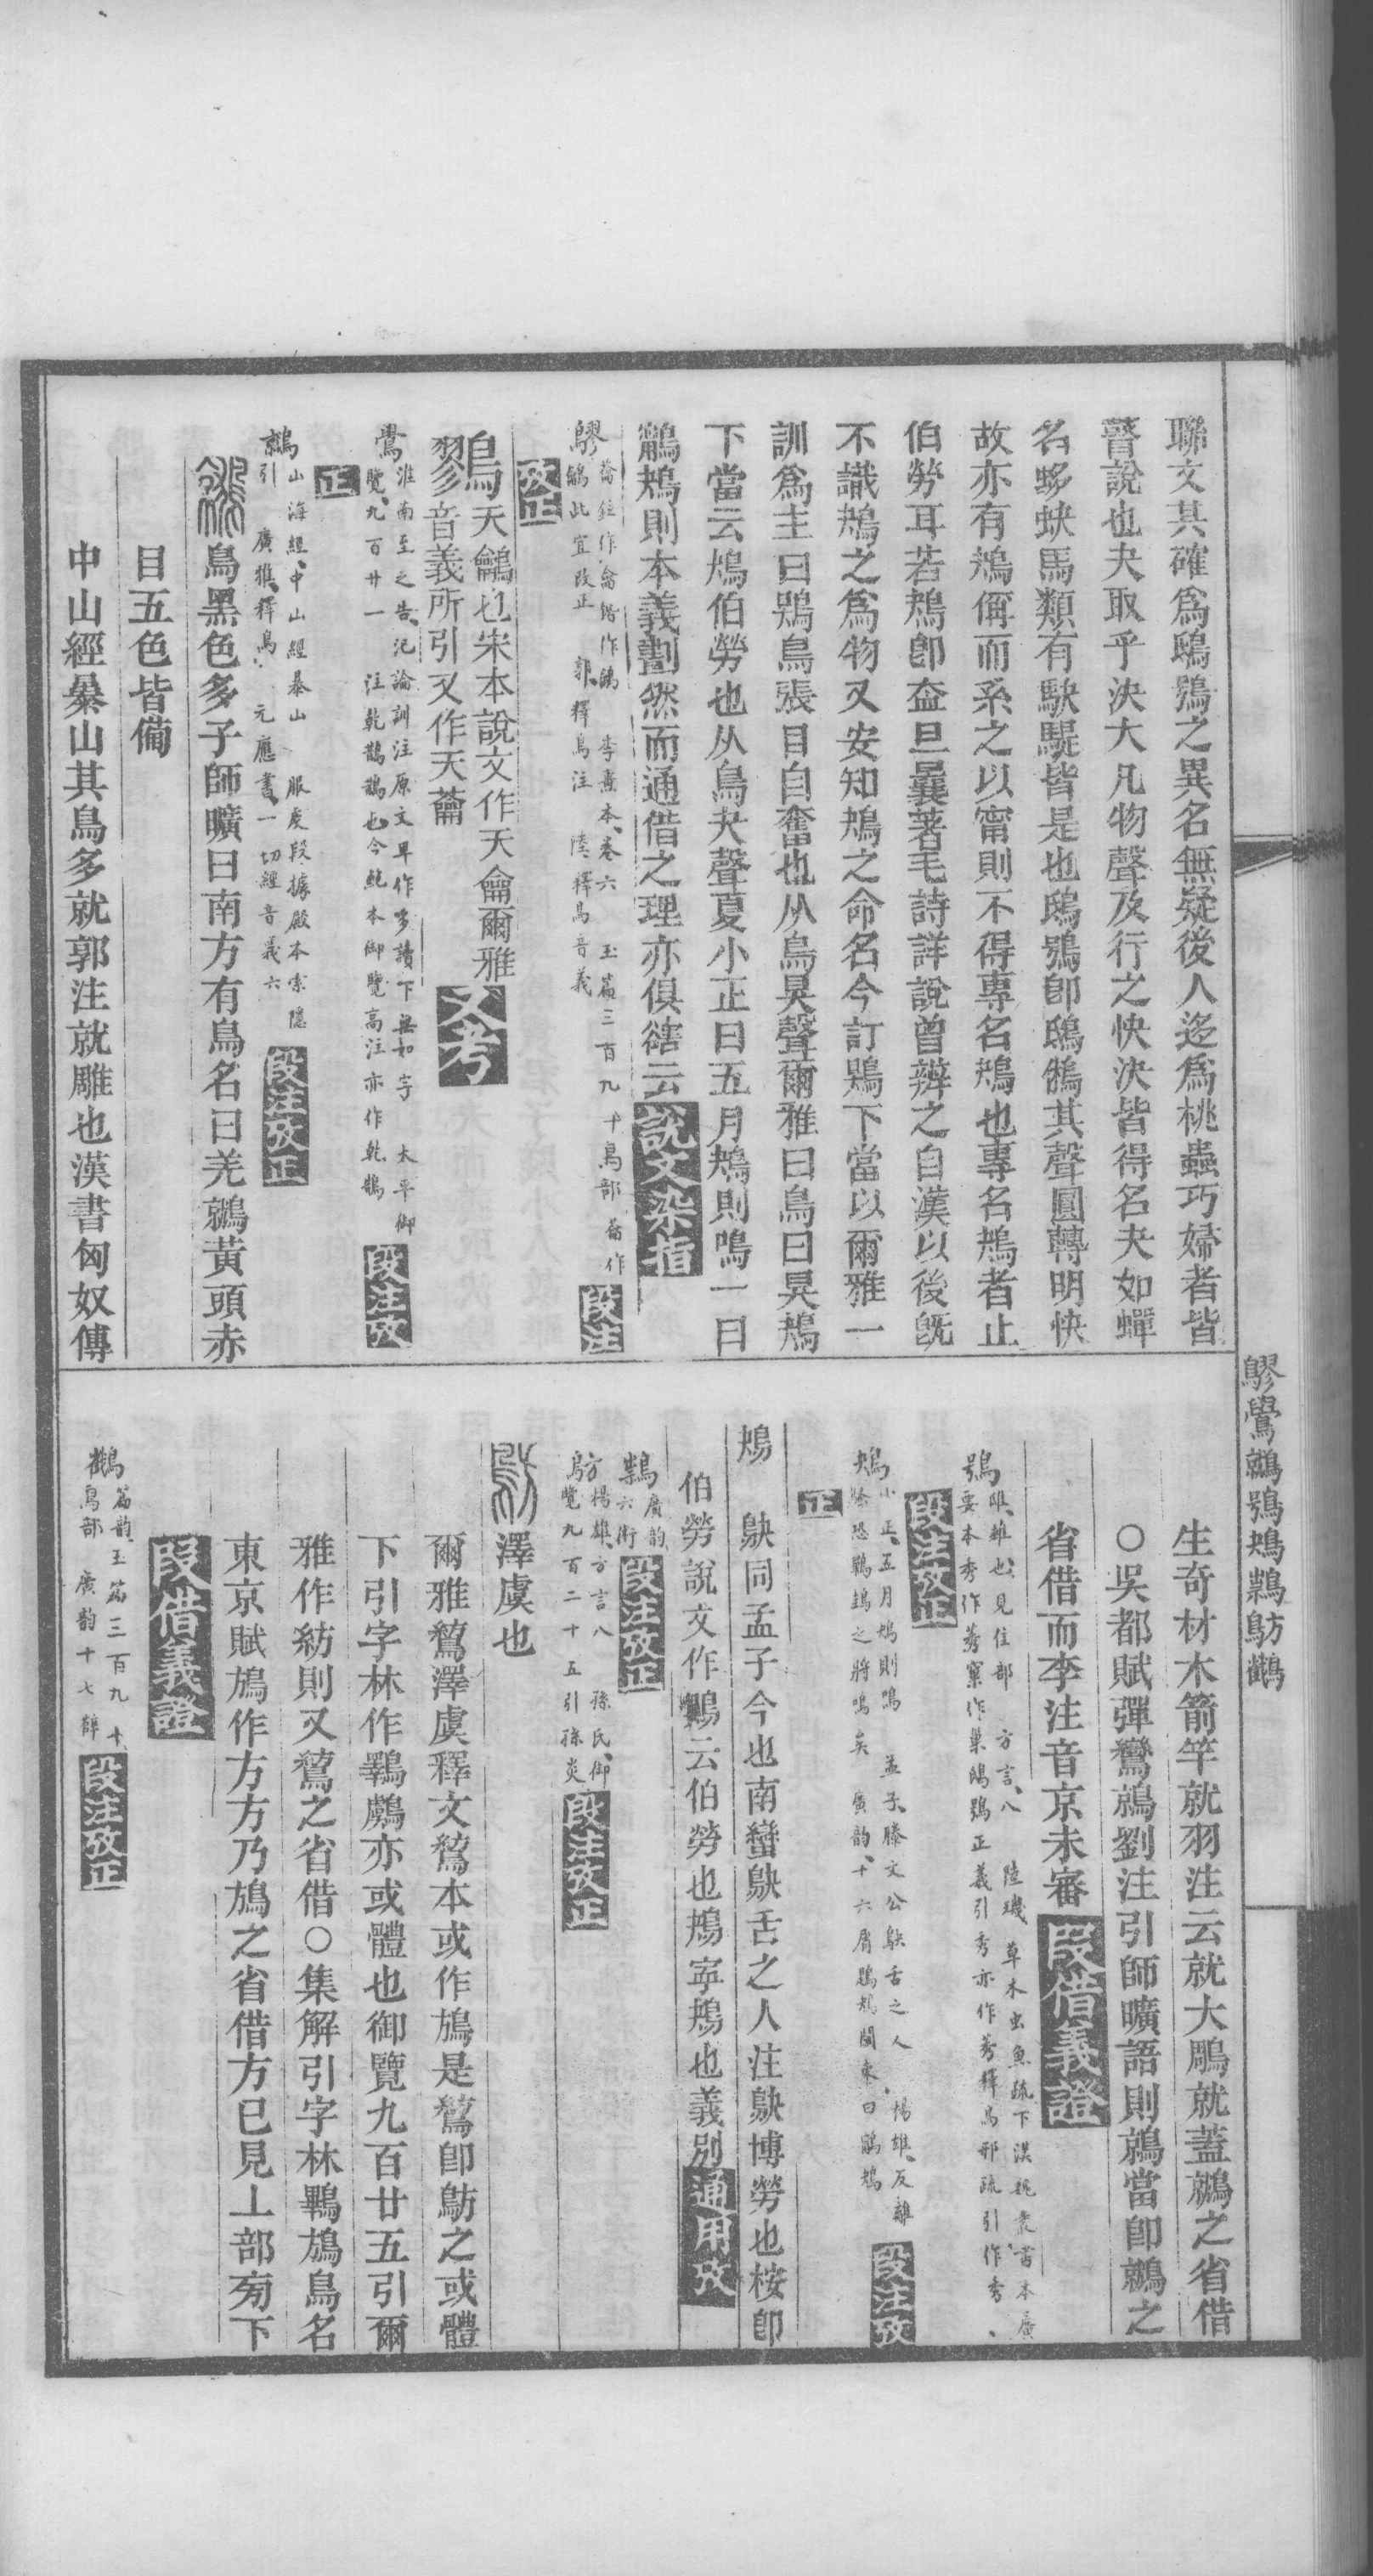 聯文其確爲鴟鴞之異名無疑後人迻爲桃蟲巧婦者皆
瞀說也夫取乎決大凡物聲及行之快決皆得名夫如蟬
名蛥蚗馬類有駃騠皆是也鴟鴞卽鴟鵂其聲圓轉明快
故亦有鴂偁而系之以甯則不得專名鴂也專名鴂者止
伯勞耳若鴂卽盇旦曩著毛詩詳說曾辨之自漢以後旣
不識鴂之爲物又安知鴂之命名今訂鶪下當以爾雅一
訓爲主曰鶪鳥張目自奮也从鳥狊聲爾雅曰鳥曰狊鴂
下當云鴂伯勞也从鳥夬聲夏小正曰五月鴂則鳴一曰
鷦鴂則本義劃然而通借之理亦俱䜭云說文染指
鷚
李燾本、卷六 玉篇三百九十鳥部 蓊作
鸙此宜改正 郭、釋鳥注 陸釋鳥音義
段注
攷正
鷚天鸙也宋本說文作天龠爾雅
音義所引又作天蘥大考
鷽
淮南至之告、氾論訓注原文早作多讀下無如字 太平御
覽、九百廿一 注乾鵲鵲也今鮑本御覽高注亦作乾鵲
段注攷
正
鷲
山海經、中山經暴山 服虔段據殿本索隱
引 廣雅、釋鳥、 元應書、一切經音義六
段注攷正
鳥黑色多子師曠曰南方有鳥名曰羌鷲黃頭赤
目五色皆備
中山經㬥山其鳥多就郭注就雕也漢書匈奴傳
鷚鷽鷲鴞鴂鷙鶭鸛
生奇材木箭竿就羽注云就大鵰就蓋鷲之省借
○吳都賦彈鸞鶁劉注引師曠語則鶁當卽鷲之
省借而李注音京未審段借義證
鴞
雎、雖也、見住部 方言、八 陸璣 草木虫魚疏下漢魏叢書本廣
要本秀作莠窠作巢鴟鴞正義引秀亦作莠釋鳥邢疏引作秀、
段注攷正
鴂
小正、五月鴂則鳴 孟子、滕文公鴃舌之人、 揚雄、反離
騷恐鷤䳏之將鳴矣 廣韵、十六屑鶗鴂關東曰鶗鴂
段注攷
正
鴂 鴃同孟子今也南蠻鴃舌之人注鴃博勞也桉卽
伯勞說文作鶪云伯勞也鴂寍鴂也義別通用攷
鷙
廣韵、
六術
段注攷正
鶭
楊雄、方言八 孫氏、御
覽九百二十五引孫炎
段注攷正
澤虞也
爾雅鶭澤虞釋文鶭本或作鴋是鶭卽鶭之或體
下引字林作鸅鸆亦或體也御覽九百廿五引爾
雅作紡則又鶭之省借○集解引字林鸅鴋鳥名
東京賦鴋作方方乃鴋之省借方已見丄部㫄下
段借義證
鸛
篇韵、玉篇三百九十、
鳥部 廣韵十七薛
段注攷正